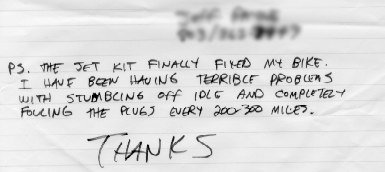 PS. THE JET KIT FINALLY FIXED MY BIKE.
I HAVE BEEN HAVING TERRIBLE PROBLEMS
WITH STUMBLING OFF IDLE AND COMPLETELY
FOULING THE PLUGS EVERY 200-300 MILES.
THANKS